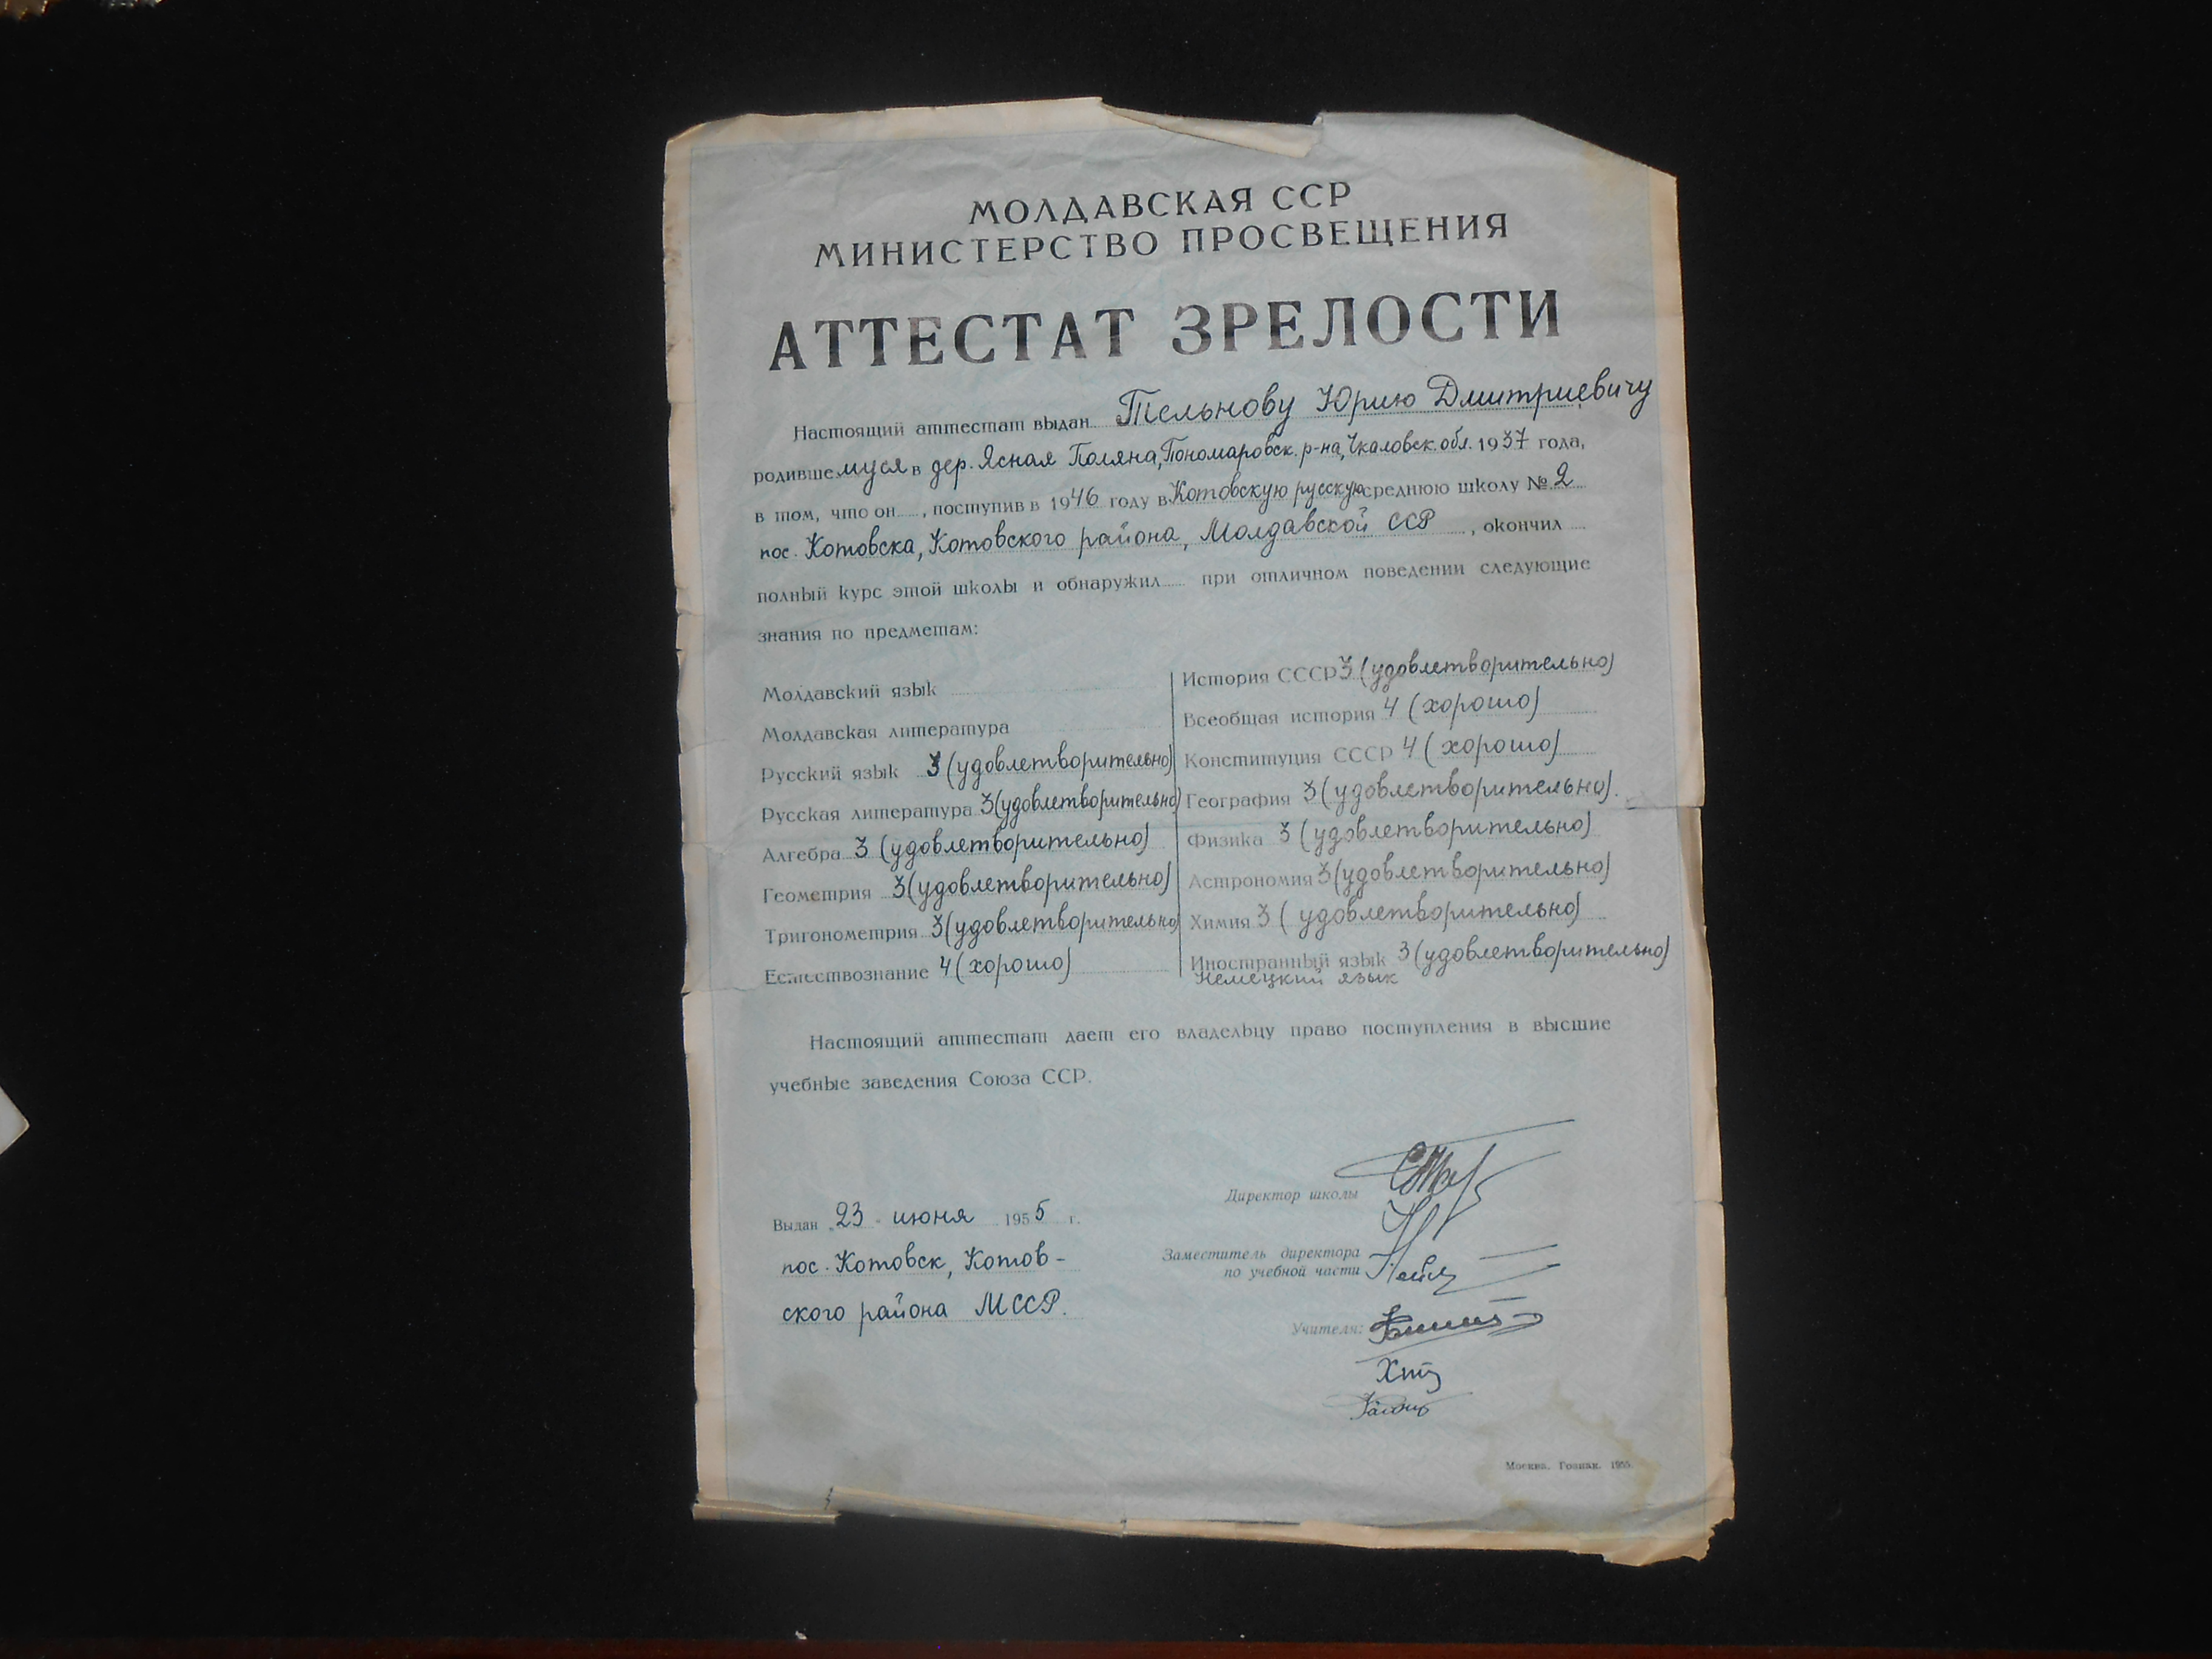 МОЛДАВСКАЯ ССР
МИНИСТЕРСТВО ПРОСВЕЩЕНИЯ
АТТЕСТАТ ЗРЕЛОСТИ
Настоящий аттестат выдан Тельнову Юрию Дмитриевичу
родившемуся в дер. Ясная Поляна, Пономаровск. р-на, Чкаловск. обл. 1937 года,
в том, что он, поступив в 1946 году в Котовскую русскую среднюю школу № 2
пос. Котовска, Котовского района, Молдавской ССР, окончил
полный курс этой школы и обнаружил при отличном поведении следующие
знания по предметам:
Молдавский язык
Молдавская литература
Русский язык 3 (удовлетворительно)
Русская литература 3 (удовлетворительно)
Алгебра 3 (удовлетворительно)
Геометрия 3 (удовлетворительно)
Тригонометрия 3 (удовлетворительно)
Естествознание 4 (хорошо)
История СССР 3 (удовлетворительно)
Всеобщая история 4 (хорошо)
Конституция СССР 4 (хорошо)
География 3 (удовлетворительно).
Физика 3 (удовлетворительно)
Астрономия 3 (удовлетворительно)
Химия 3 (удовлетворительно)
Иностранный язык 3 (удовлетворительно)
Немецкий язык
Настоящий аттестат дает его владельцу право поступления в высшие
учебные заведения Союза ССР.
Выдан „23" июня 1955 г.
пос. Котовск, Котов-
ского района МССР.
Директор школы
Заместитель директора
по учебной части
Учителя:
Москва. Гознак. 1955.